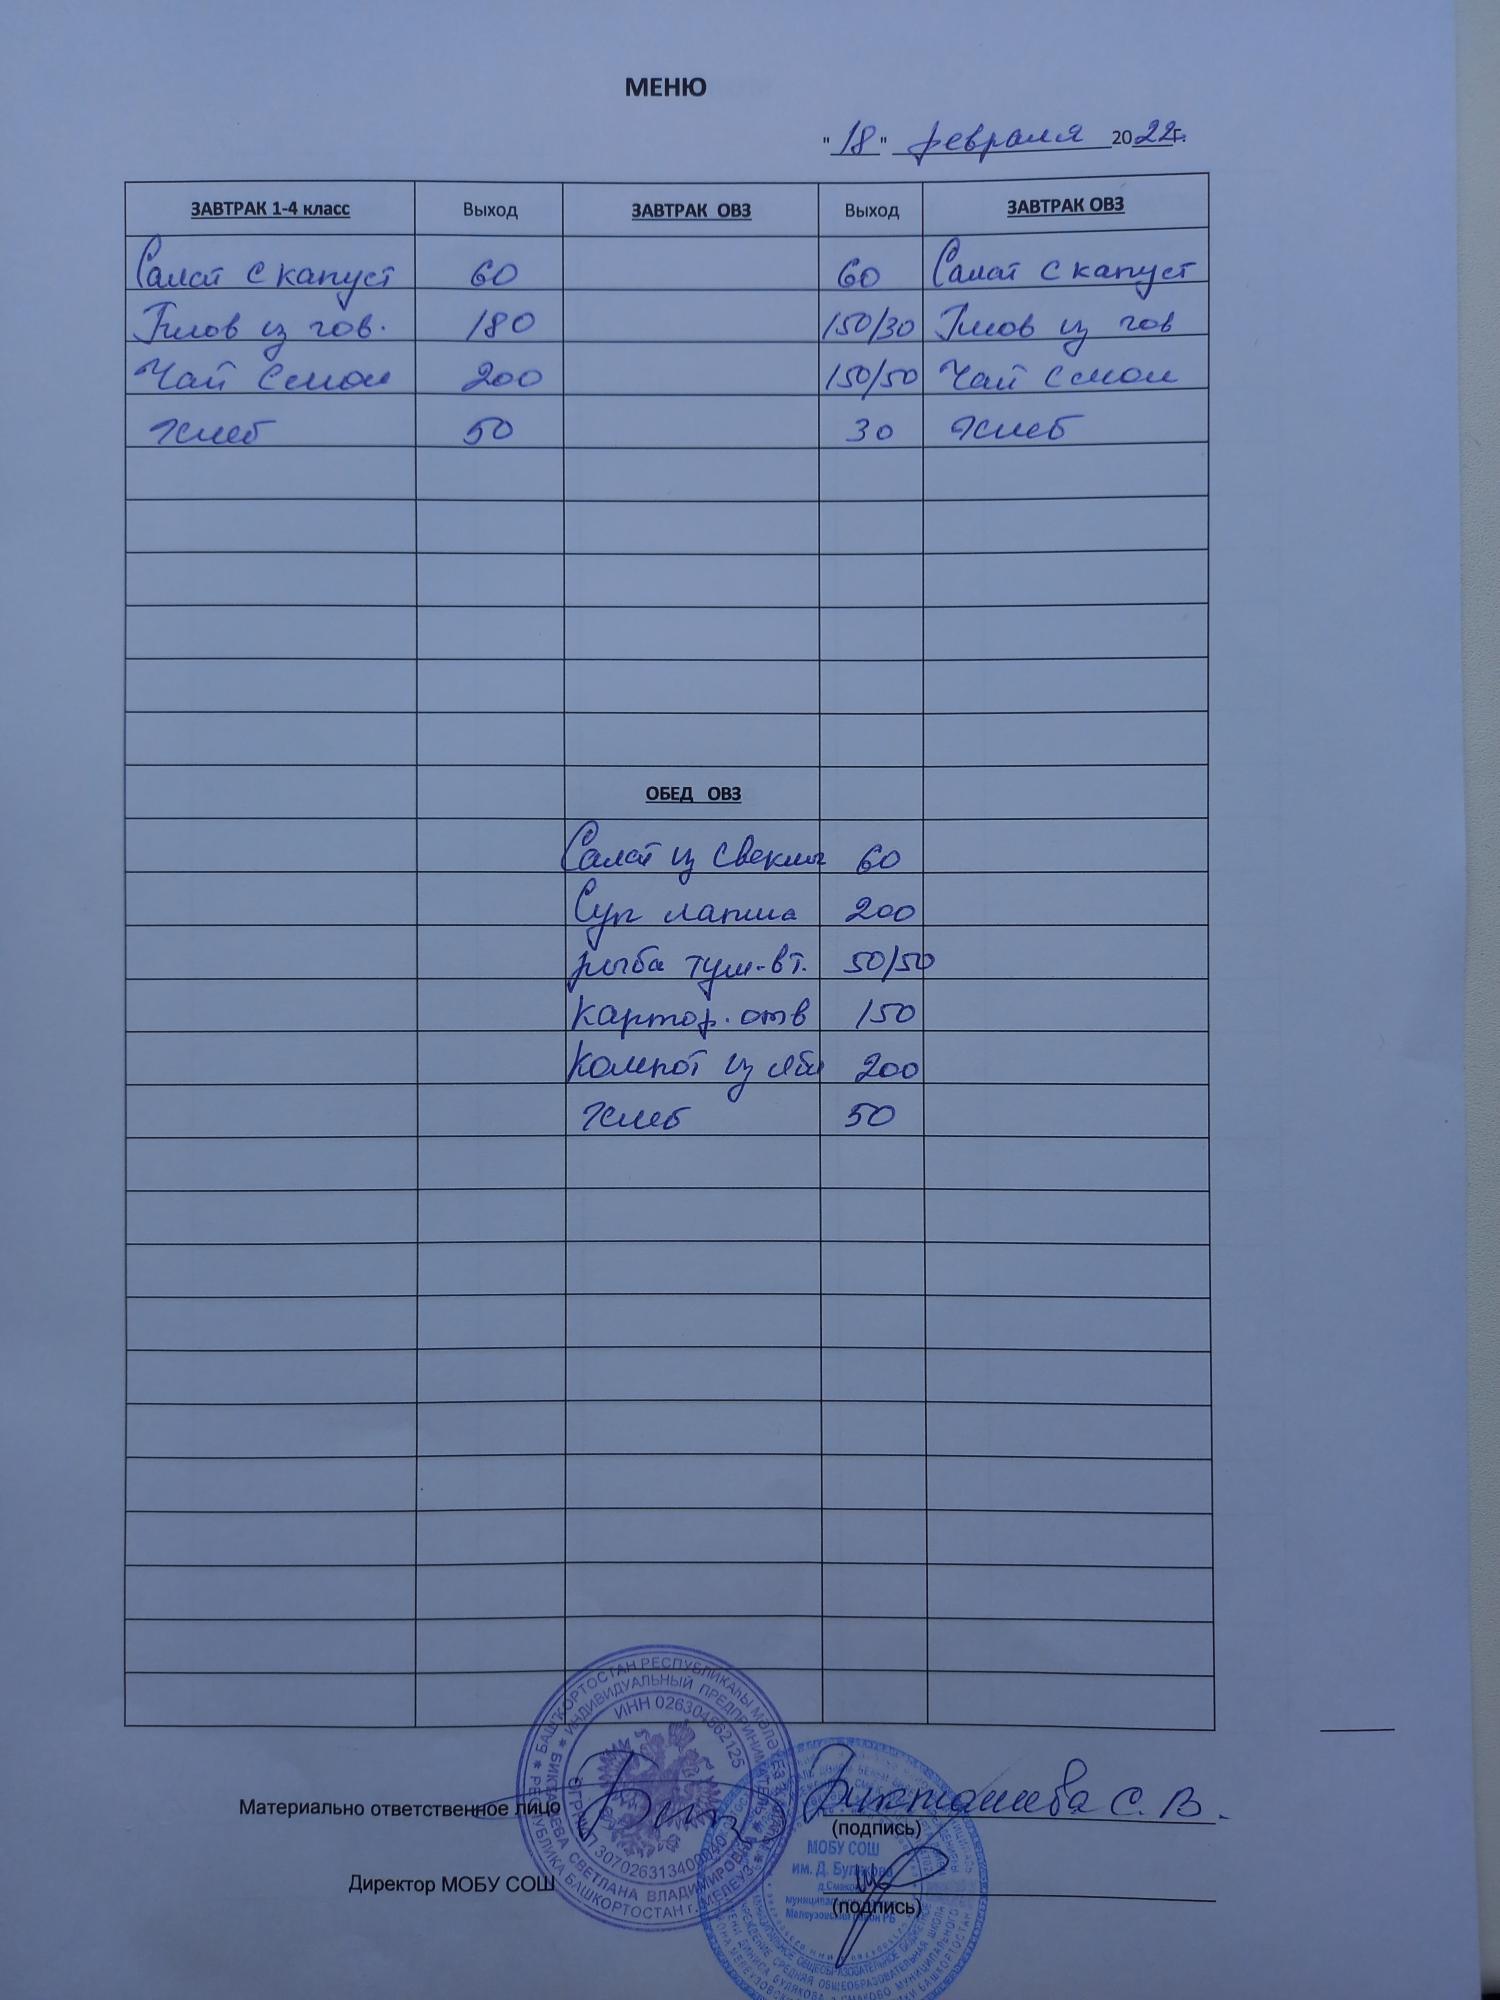 МЕНЮ
"18" февраля 2022г.
ЗАВТРАК 1-4 класс Выход ЗАВТРАК ОВЗ Выход ЗАВТРАК ОВЗ
Салат с капуст 60 60 Салат с капуст
Плов из гов. 180 150/30 Плов из гов
Чай с мол 200 150/50 Чай с мол
Хлеб 50 30 Хлеб
ОБЕД ОВЗ
Салат из свеклы 60
Суп лапша 200
рыба туш-вт. 50/50
картоф. отв 150
компот из ябл 200
Хлеб 50
БАШҠОРТОСТАН РЕСПУБЛИКАҺЫ
ИНДИВИДУАЛЬНЫЙ ПРЕДПРИНИМАТЕЛЬ
ИНН 026304562125
СВЕТЛАНА ВЛАДИМИРОВНА
РЕСПУБЛИКА БАШКОРТОСТАН г. МЕЛЕУЗ
Материально ответственное лицо Бикташева С. В.
(подпись)
МОБУ СОШ
им. Д. Булякова
Директор МОБУ СОШ
(подпись)